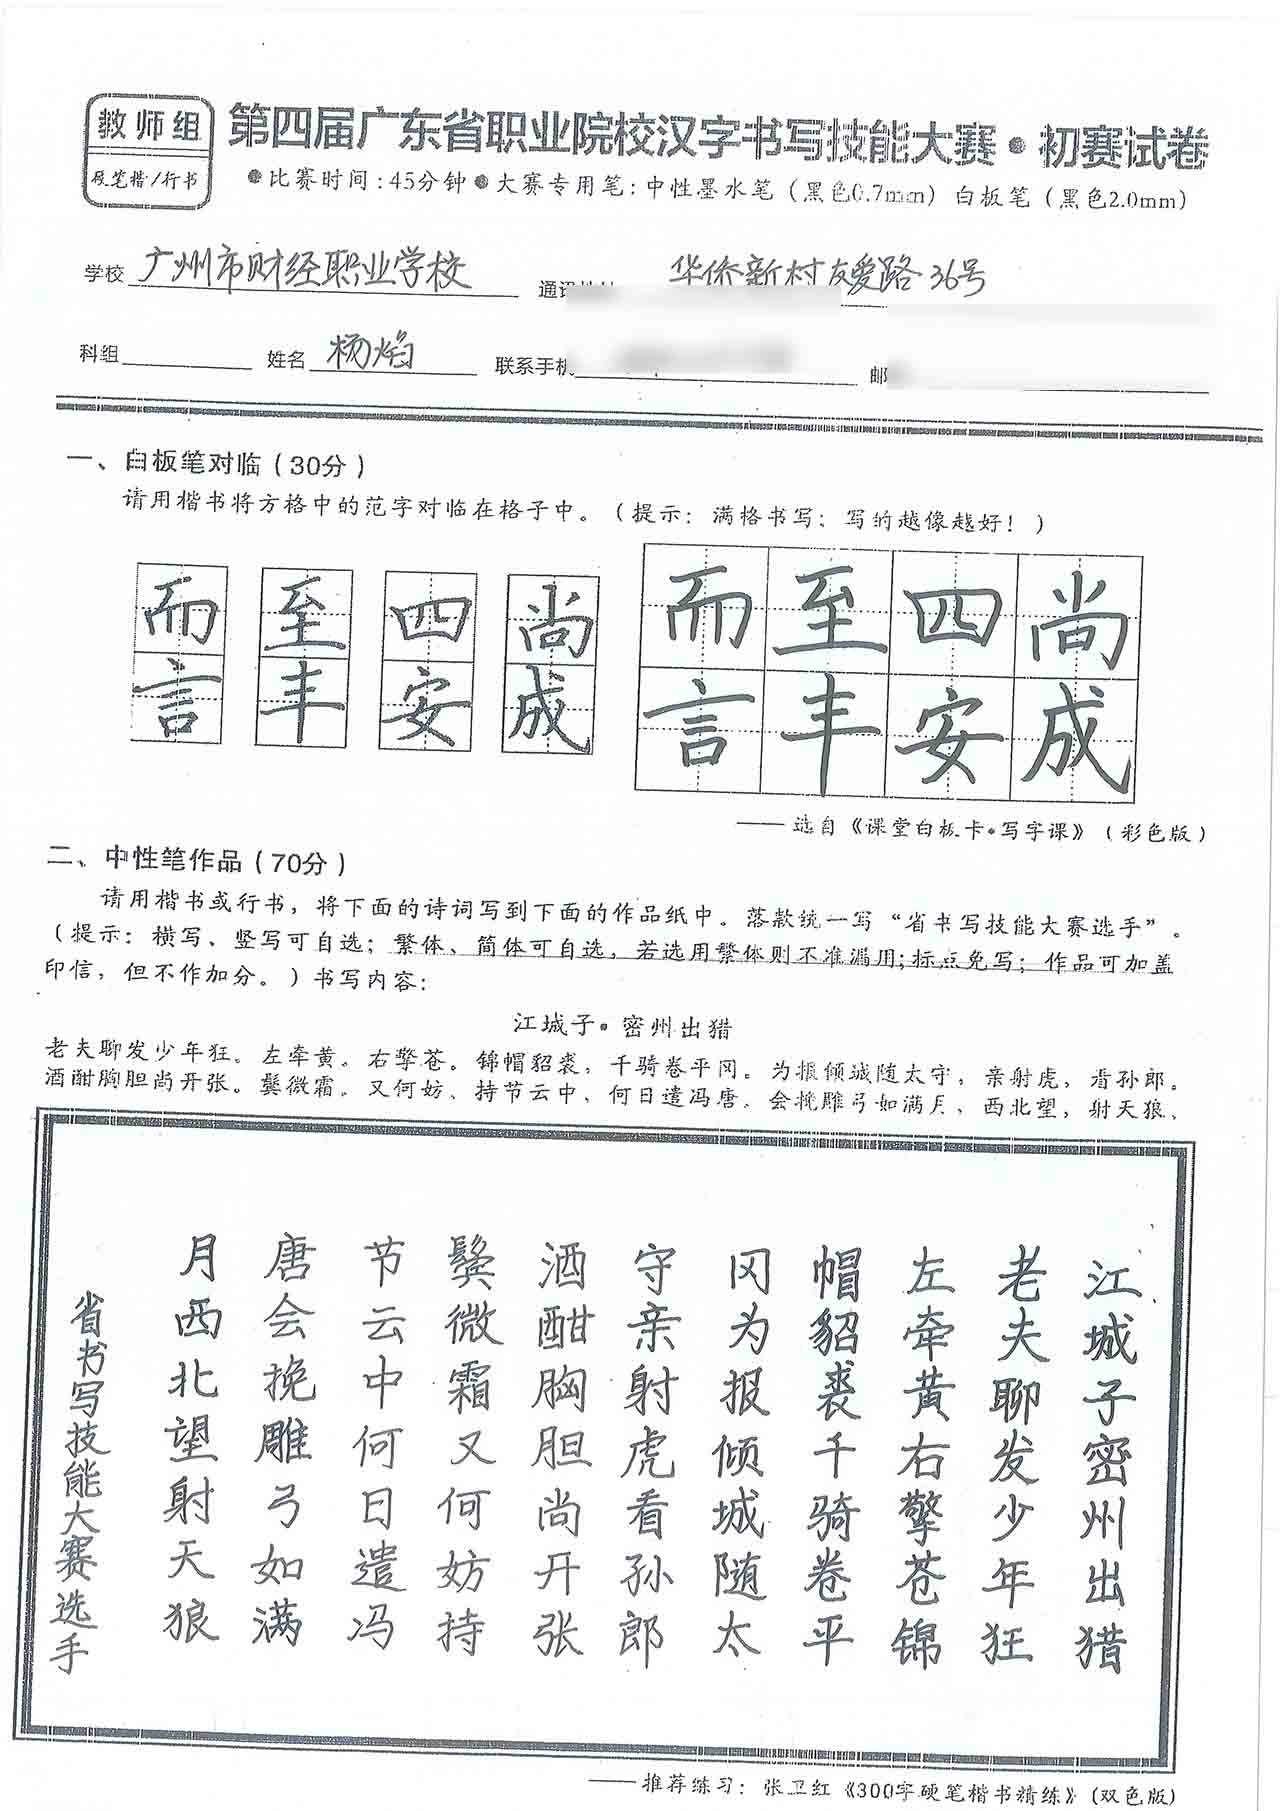 教师组
硬笔楷/行书
第四届广东省职业院校汉字书写技能大赛·初赛试卷
●比赛时间:45分钟●大赛专用笔:中性墨水笔(黑色0.7mm)白板笔(黑色2.0mm)
学校 广州市财经职业学校 通讯 华侨新村友爱路36号
科组 姓名 杨焰 联系手机 邮
一、白板笔对临(30分)
请用楷书将方格中的范字对临在格子中。(提示:满格书写;写的越像越好!)
而 至 四 尚 而至四尚
言 丰 安 成 言丰安成
——选自《课堂白板卡·写字课》(彩色版)
二、中性笔作品(70分)
请用楷书或行书,将下面的诗词写到下面的作品纸中。落款统一写“省书写技能大赛选手”。
(提示:横写、竖写可自选;繁体、简体可自选,若选用繁体则不准漏用;标点免写;作品可加盖
印信,但不作加分。)书写内容:
江城子·密州出猎
老夫聊发少年狂。左牵黄。右擎苍。锦帽貂裘,千骑卷平冈。为报倾城随太守,亲射虎,看孙郎。
酒酣胸胆尚开张。鬓微霜。又何妨、持节云中、何日遣冯唐。会挽雕弓如满月、西北望,射天狼、
江城子密州出猎
老夫聊发少年狂
左牵黄右擎苍锦
帽貂裘千骑卷平
冈为报倾城随太
守亲射虎看孙郎
酒酣胸胆尚开张
鬓微霜又何妨持
节云中何日遣冯
唐会挽雕弓如满
月西北望射天狼
省书写技能大赛选手
——推荐练习:张卫红《300字硬笔楷书精练》(双色版)